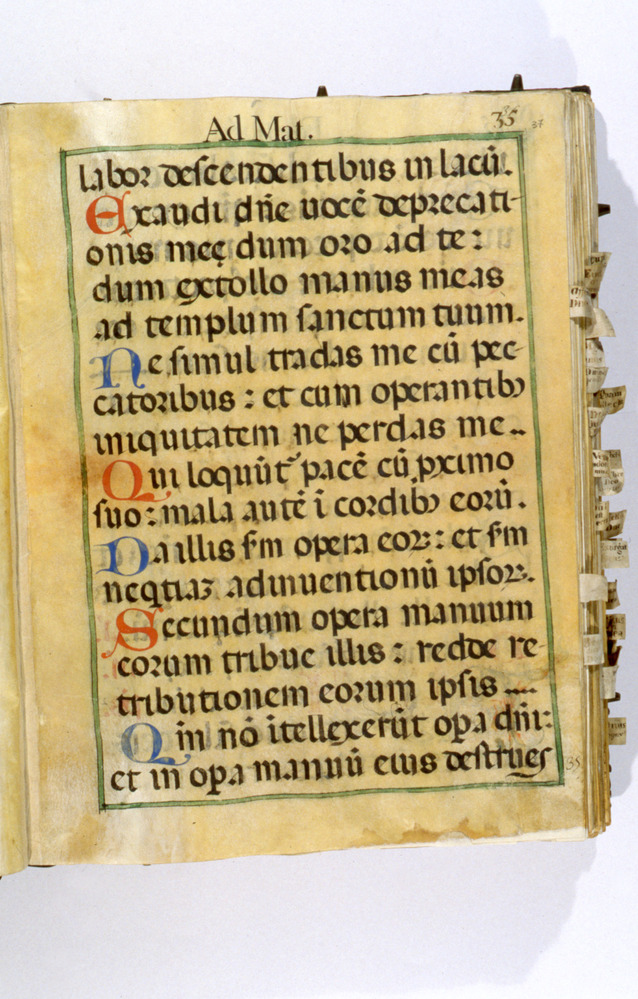 Ad Mat.
35
37
labor descendentibus in lacū.
Exaudi dn̄e uocē deprecati-
onis meę dum oro ad te:
dum extollo manus meas
ad templum sanctum tuum.
Ne simul tradas me cū pec-
catoribus: et cum operantibꝫ
iniquitatem ne perdas me..
Qui loquūt᷑ pacē cū ꝓximo
suo: mala autē ī cordibꝫ eorū.
Da illis s̄m opera eoꝝ: et s̄m
neqtiaꝫ adinuentionū ipsoꝝ.
Secundum opera manuum
eorum tribue illis: redde re-
tributionem eorum ipsis
Qm̄ nō ītellexerūt oꝑa dn̄i:
et in oꝑa manuū eius destrues
35